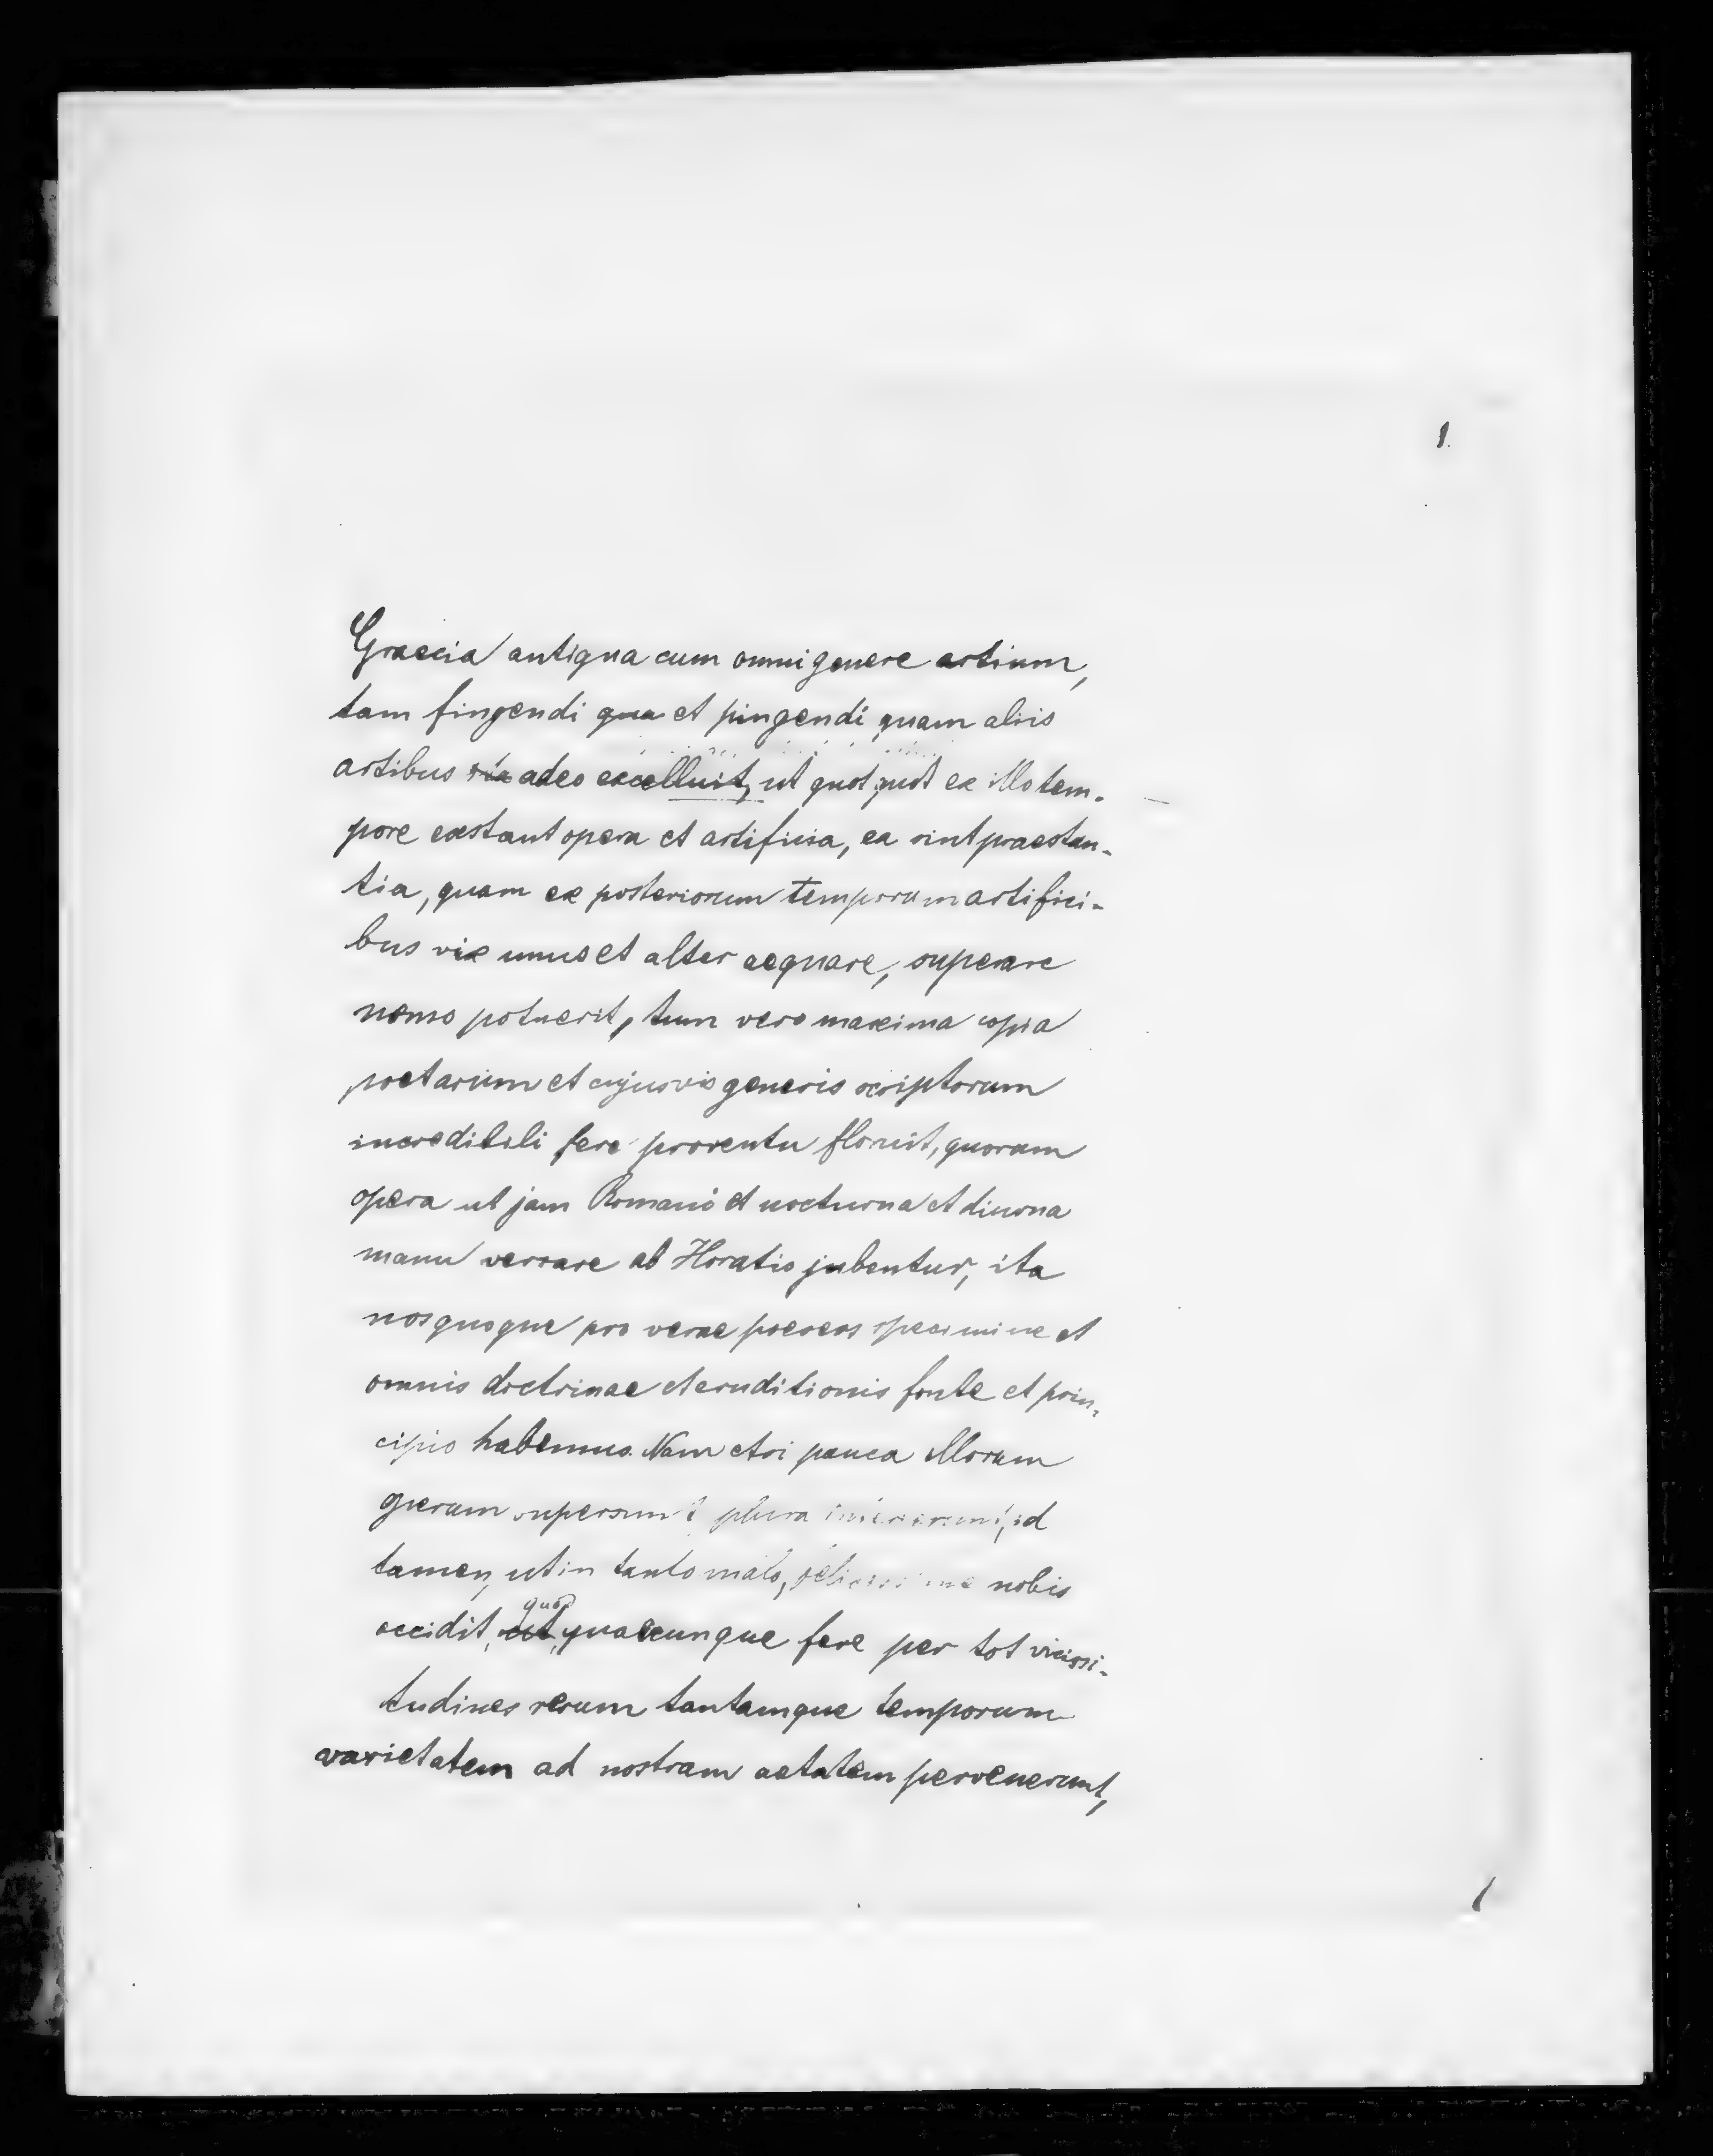 1.
Graecia antiqua cum omni genere artium,
tam fingendi qua et pingendi quam aliis
artibus ita adeo excelluit, ut quotquot ex illo tem-
pore exstant opera et artificia, ea sint praestan-
tia, quam ex posteriorum temporum artifici-
bus vix unus et alter aequare, superare
nemo potuerit, tum vero maxima copia
poetarum et cujusvis generis scriptorum
incredibili fere proventu floruit, quorum
opera ut jam Romani et nocturna et diurna
manu versare ab Horatio jubentur, ita
nos quoque pro verae poeseos specimine et
omnis doctrinae et eruditionis fonte et prin-
cipio habemus. Nam etsi pauca illorum
operum supersunt plura interierunt, id
tamen, ut in tanto malo, nobis
quod
accidit, ut, quaecunque fere per tot vicissi-
tudines rerum tantamque temporum
varietatem ad nostram aetatem pervenerunt,
1